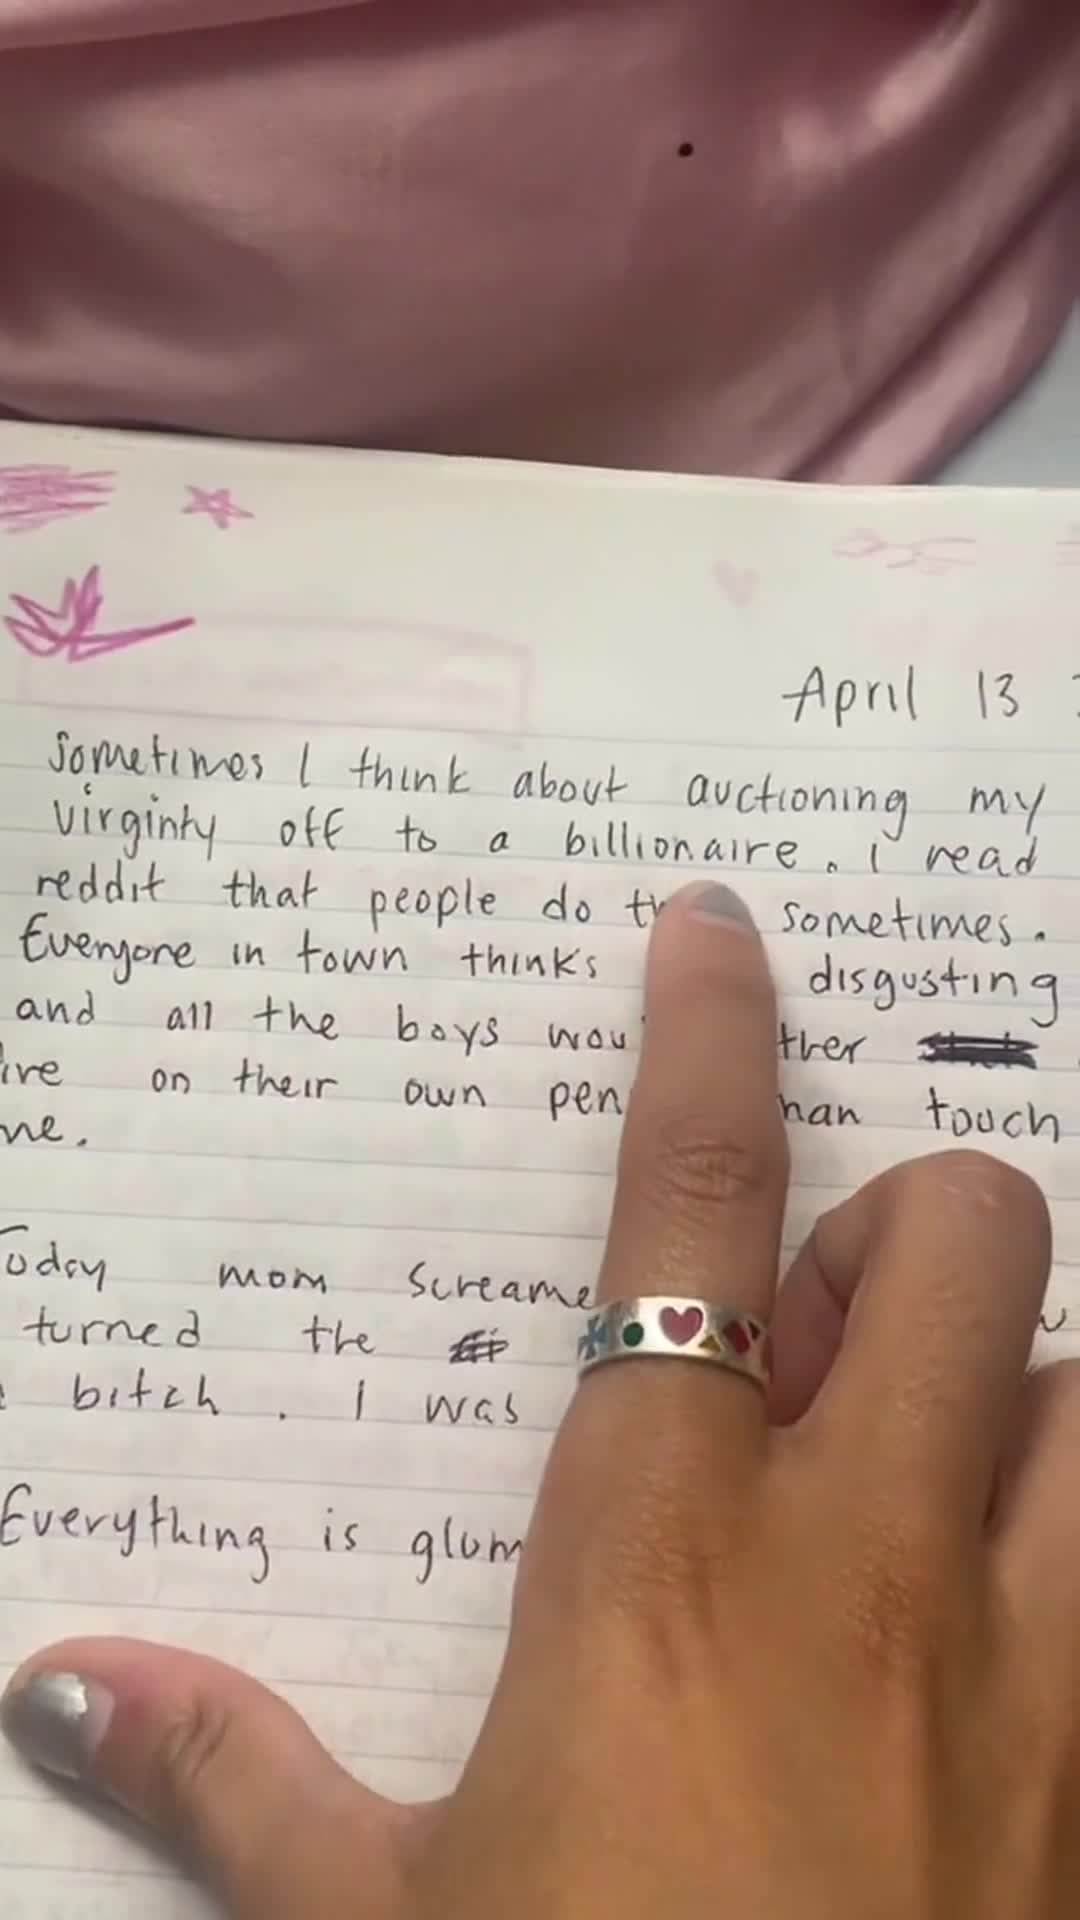 April 13
Sometimes I think about auctioning my
virginty off to a billionaire. I read
reddit that people do sometimes.
Everyone in town thinks disgusting
and all the boys
on their own than touch
me.
Today mom
turned the
bitch. I was
Everything is